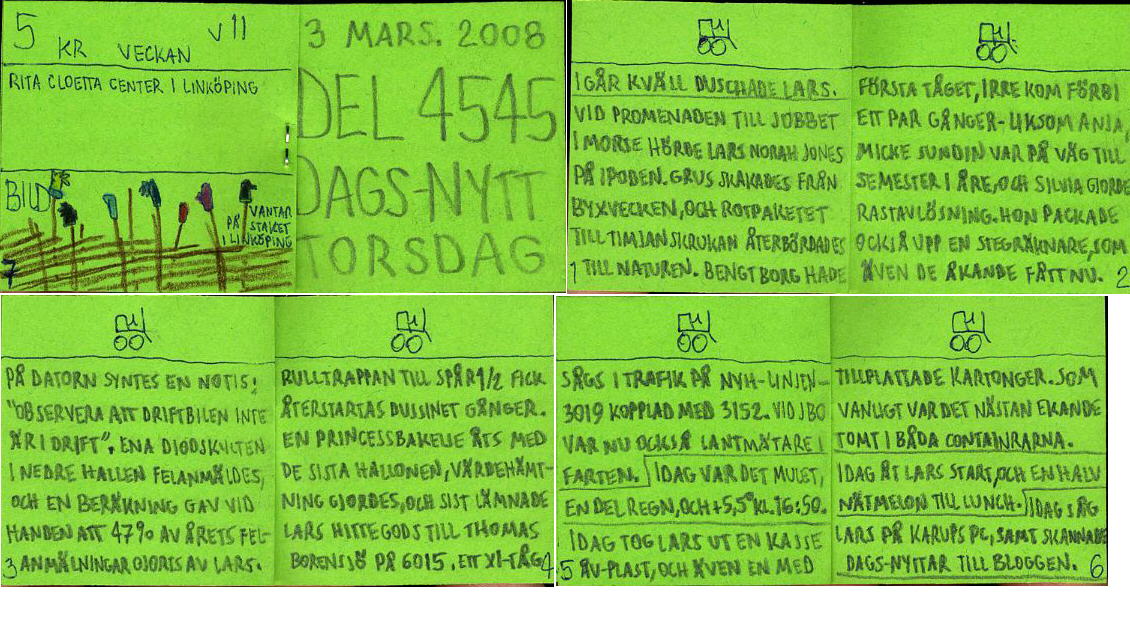 5 KR VECKAN V11
RITA CLOETTA CENTER I LINKÖPING
BILD
VANTAR
PÅ STAKET
I LINKÖPING
7
3 MARS. 2008
DEL 4545
DAGS-NYTT
TORSDAG
I GÅR KVÄLL DUSCHADE LARS.
VID PROMENADEN TILL JOBBET
I MORSE HÖRDE LARS NORAH JONES
PÅ IPODEN. GRUS SKAKADES FRÅN
BYXVECKEN, OCH ROTPAKETET
TILL TIMJANSKRUKAN ÅTERBÖRDADES
1 TILL NATUREN. BENGT BORG HADE
FÖRSTA TÅGET, IRRE KOM FÖRBI
ETT PAR GÅNGER-LIKSOM ANJA,
MICKE SUNDIN VAR PÅ VÄG TILL
SEMESTER I ÅRE, OCH SILVIA GJORDE
RASTAVLÖSNING. HON PACKADE
OCKSÅ UPP EN STEGRÄKNARE, SOM
ÄVEN DE ÅKANDE FÅTT NU. 2
PÅ DATORN SYNTES EN NOTIS:
"OBSERVERA ATT DRIFTBILEN INTE
ÄR I DRIFT". ENA DIODSKYLTEN
I NEDRE HALLEN FELANMÄLDES,
OCH EN BERÄKNING GAV VID
HANDEN ATT 47% AV ÅRETS FEL-
3 ANMÄLNINGAR GJORTS AV LARS.
RULLTRAPPAN TILL SPÅR 1/2 FICK
ÅTERSTARTAS DUSSINET GÅNGER.
EN PRINCESSBAKELSE ÅTS MED
DE SISTA HALLONEN, VÄRDEHÄMT-
NING GJORDES, OCH SIST LÄMNADE
LARS HITTEGODS TILL THOMAS
BORENSJÖ PÅ 6015, ETT X1-TÅG 4
SÅGS I TRAFIK PÅ NYH-LINJEN-
3019 KOPPLAD MED 3152. VID JBO
VAR NU OCKSÅ LANTMÄTARE I
FARTEN. IDAG VAR DET MULET,
EN DEL REGN, OCH +5,5° KL. 16:50.
IDAG TOG LARS UT EN KASSE
5 ÅV-PLAST, OCH ÄVEN EN MED
TILLPLATTADE KARTONGER. SOM
VANLIGT VAR DET NÄSTAN EKANDE
TOMT I BÅDA CONTAINRARNA.
IDAG ÅT LARS START, OCH EN HALV
NÄTMELON TILL LUNCH. IDAG SÅG
LARS PÅ KARUPS PC, SAMT SKANNADE
DAGS-NYTTAR TILL BLOGGEN. 6